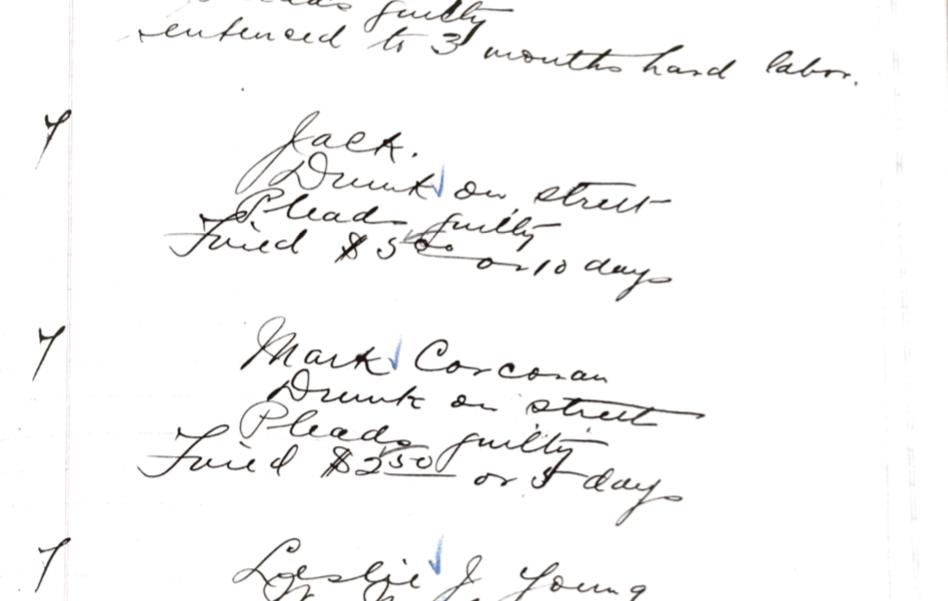 Pleads guilty
sentenced to 3 months hard labor.
7 Jack.
Drunk on street
Pleads guilty
Fined $5.00 or 10 days
7 Mark Corcoran
Drunk on street
Pleads guilty
Fined $2.50 or 5 days
7 Leslie J Young